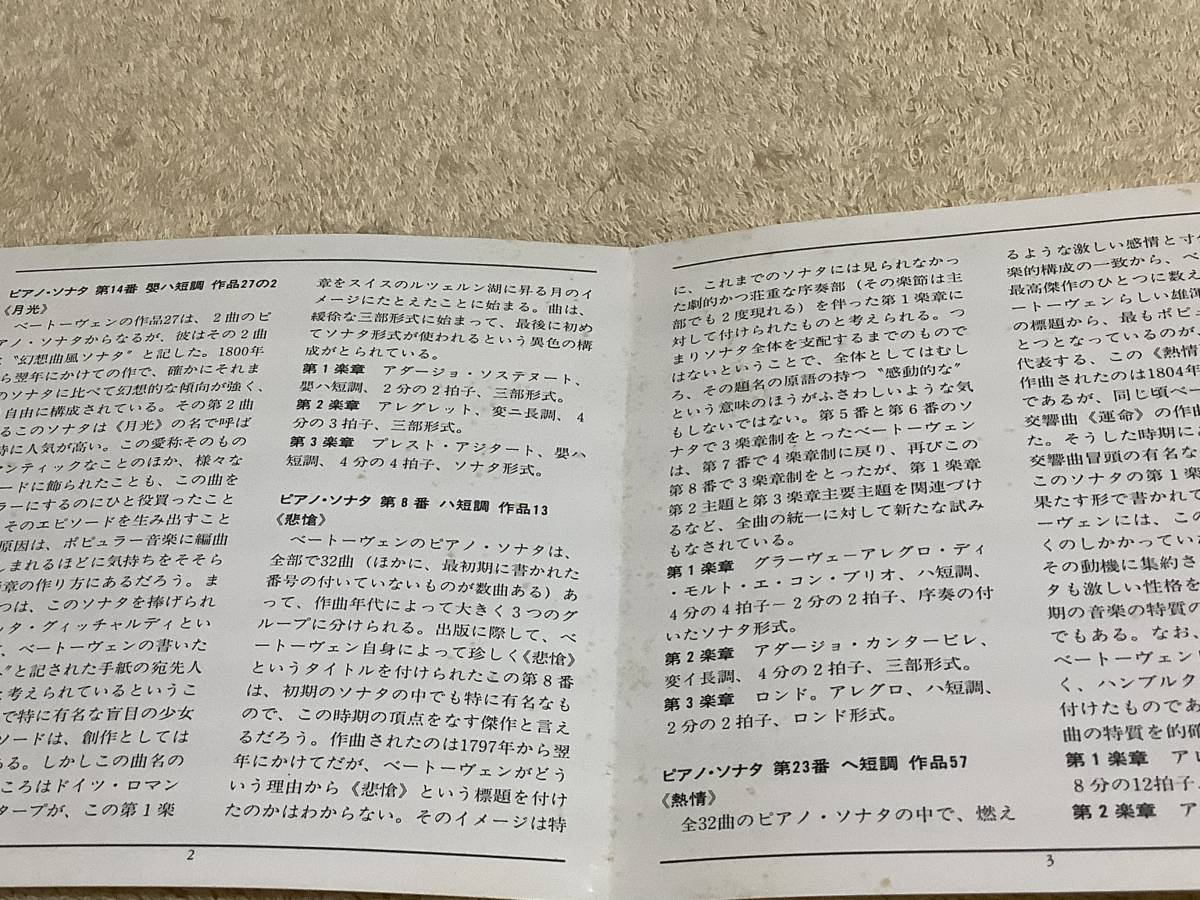 ピアノ・ソナタ 第14番 嬰ハ短調 作品27の2
《月光》
ベートーヴェンの作品27は、２曲のピ
アノ・ソナタからなるが、彼はその２曲
〝幻想曲風ソナタ〟と記した。1800年
ら翌年にかけての作で、確かにそれま
のソナタに比べて幻想的な傾向が強く、
自由に構成されている。その第２曲
るこのソナタは《月光》の名で呼ば
特に人気が高い。この愛称そのもの
ンティックなことのほか、様々な
ードに飾られたことも、この曲を
ラーにするのにひと役買ったこと
そのエピソードを生み出すこと
原因は、ポピュラー音楽に編曲
しまれるほどに気持ちをそそら
章の作り方にあるだろう。ま
つは、このソナタを捧げられ
ッタ・グィッチャルディとい
、ベートーヴェンの書いた
〟と記された手紙の宛先人
考えられているというこ
で特に有名な盲目の少女
ソードは、創作としては
ある。しかしこの曲名の
ころはドイツ・ロマン
タープが、この第１楽
章をスイスのルツェルン湖に昇る月のイ
メージにたとえたことに始まる。曲は、
緩徐な三部形式に始まって、最後に初め
てソナタ形式が使われるという異色の構
成がとられている。
第１楽章 アダージョ・ソステヌート、
嬰ハ短調、２分の２拍子、三部形式。
第２楽章 アレグレット、変ニ長調、４
分の３拍子、三部形式。
第３楽章 プレスト・アジタート、嬰ハ
短調、４分の４拍子、ソナタ形式。
ピアノ・ソナタ 第８番 ハ短調 作品13
《悲愴》
ベートーヴェンのピアノ・ソナタは、
全部で32曲（ほかに、最初期に書かれた
番号の付いていないものが数曲ある）あ
って、作曲年代によって大きく３つのグ
ループに分けられる。出版に際して、ベ
ートーヴェン自身によって珍しく《悲愴》
というタイトルを付けられたこの第８番
は、初期のソナタの中でも特に有名なも
ので、この時期の頂点をなす傑作と言え
るだろう。作曲されたのは1797年から翌
年にかけてだが、ベートーヴェンがどう
いう理由から《悲愴》という標題を付け
たのかはわからない。そのイメージは特
2
に、これまでのソナタには見られなかっ
た劇的かつ荘重な序奏部（その楽節は主
部でも２度現れる）を伴った第１楽章に
対して付けられたものと考えられる。つ
まりソナタ全体を支配するまでのもので
はないということで、全体としてはむし
ろ、その題名の原語の持つ〝感動的な〟
という意味のほうがふさわしいような気
もしないではない。第５番と第６番のソ
ナタで３楽章制をとったベートーヴェン
は、第７番で４楽章制に戻り、再びこの
第８番で３楽章制をとったが、第１楽章
第２主題と第３楽章主要主題を関連づけ
るなど、全曲の統一に対して新たな試み
もなされている。
第１楽章 グラーヴェ－アレグロ・ディ
・モルト・エ・コン・ブリオ、ハ短調、
４分の４拍子－２分の２拍子、序奏の付
いたソナタ形式。
第２楽章 アダージョ・カンタービレ、
変イ長調、４分の２拍子、三部形式。
第３楽章 ロンド。アレグロ、ハ短調、
２分の２拍子、ロンド形式。
ピアノ・ソナタ 第23番 ヘ短調 作品57
《熱情》
全32曲のピアノ・ソナタの中で、燃え
るような激しい感情とす
楽的構成の一致から、ベ
最高傑作のひとつに数え
ートーヴェンらしい雄渾
の標題から、最もポピュ
とつとなっているのが
代表する、この《熱情
作曲されたのは1804年
であるが、同じ頃ベー
交響曲《運命》の作曲
た。そうした時期にあ
交響曲冒頭の有名な
このソナタの第１楽
果たす形で書かれて
ーヴェンには、この
くのしかかってい
その動機に集約さ
タも激しい性格を
期の音楽の特質の
でもある。なお、
ベートーヴェン
く、ハンブルク
付けたものであ
曲の特質を的確
第１楽章 アレ
８分の12拍子、
第２楽章 ア
3